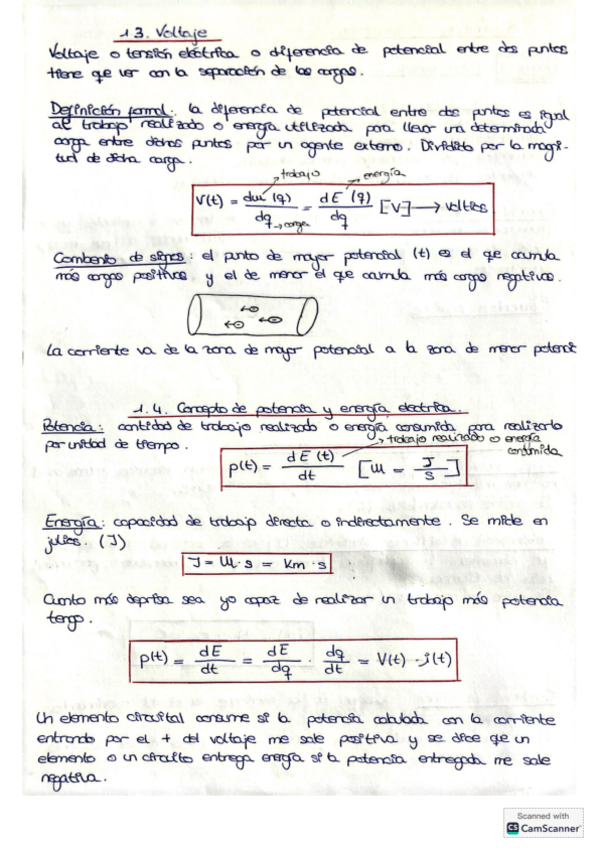 1.3. Voltaje
Voltaje o tensión eléctrica o diferencia de potencial entre dos puntos
tiene que ver con la separación de las cargas.
Definición formal: la diferencia de potencial entre dos puntos es igual
al trabajo realizado o energía utilizada para llevar una determinada
carga entre dichos puntos por un agente externo. Dividito por la magni-
tud de dicha carga.
trabajo energía
V(t) = dw (q) / dq = dE (q) / dq [V] → Voltios
→ carga
Combenio de signos: el punto de mayor potencial (t) es el que acumula
más cargas positivas y el de menor el que acumula más cargas negativas.
La corriente va de la zona de mayor potencial a la zona de menor potenci
1.4. Concepto de potencia y energía eléctrica.
Potencia: cantidad de trabajo realizado o energía consumida para realizarlo
por unidad de tiempo.
→ trabajo realizado o energía consumida
p(t) = dE (t) / dt [W = J / s]
Energía: capacidad de trabajo directa o indirectamente. Se mide en
julios. (J)
J = W · s = km · s
Cuanto más deprisa sea yo capaz de realizar un trabajo más potencia
tengo.
p(t) = dE / dt = dE / dq · dq / dt = V(t) · i(t)
Un elemento circuital consume si la potencia calculada con la corriente
entrando por el + del voltaje me sale positiva y se dice que un
elemento o un circuito entrega energía si la potencia entregada me sale
negativa.
Scanned with
CS CamScanner